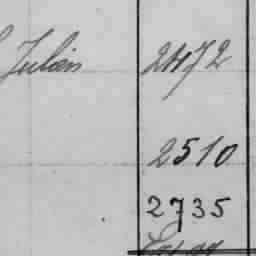 Julian 2472
2510
2735